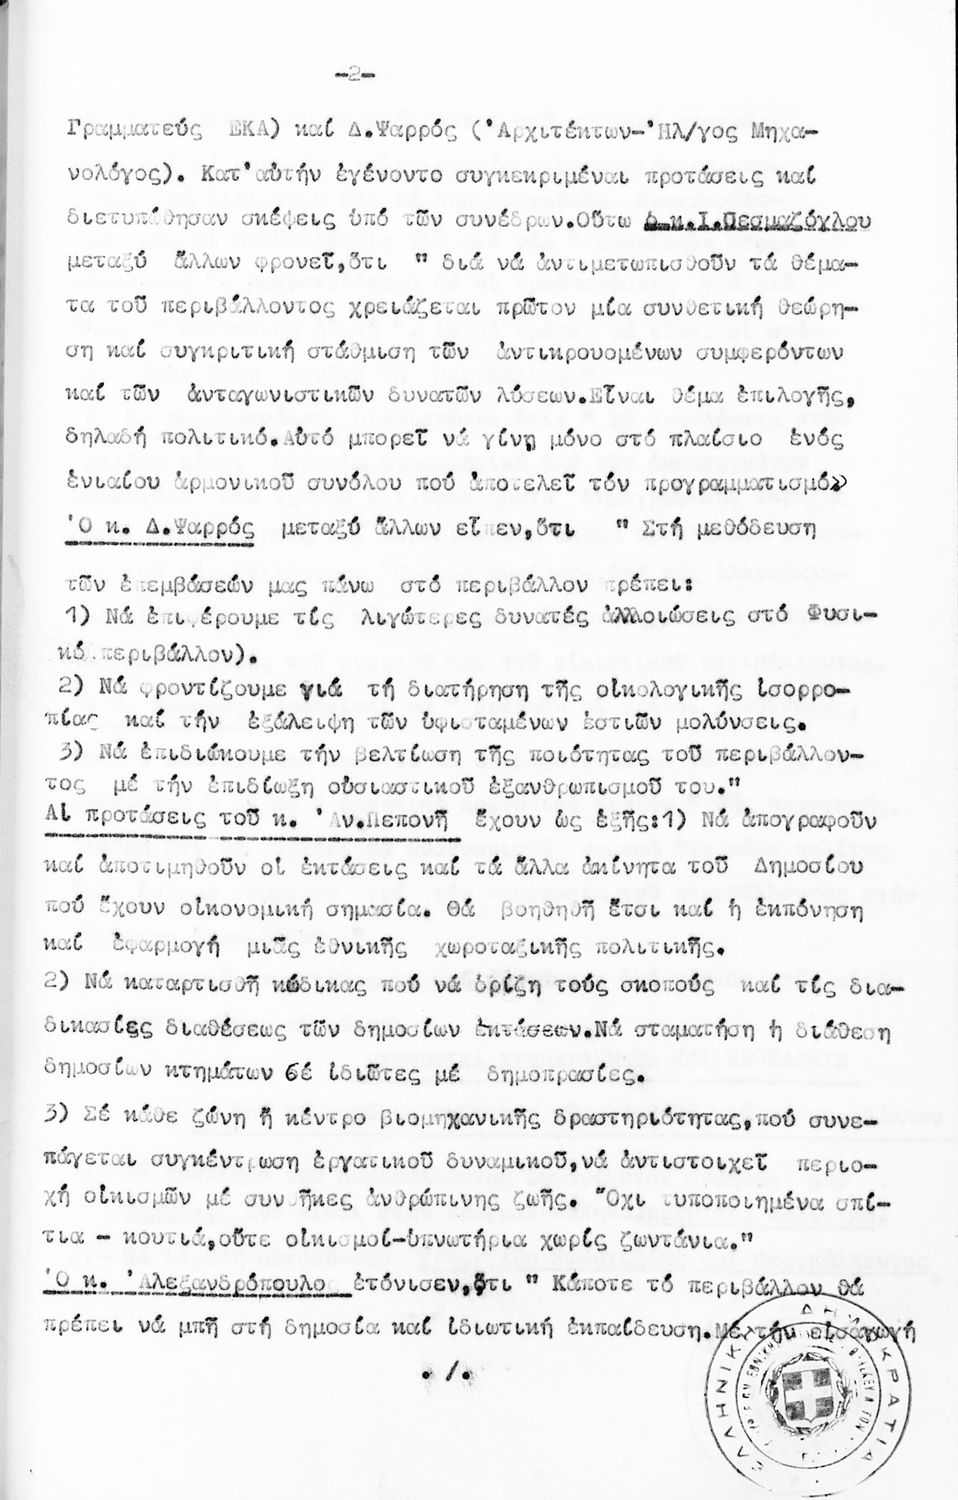 -2-
Γραμματεύς ΕΚΑ) καί Δ.Ψαρρός ('Αρχιτέκτων-'Ηλ/γος Μηχα-
νολόγος). Κατ'αὐτήν ἐγένοντο συγκεκριμέναι προτάσεις καί
διετυπώθησαν σκέψεις ὑπό τῶν συνέδρων.Οὕτω ὁ κ.Ι.Πεσμαζόγλου
μεταξύ ἄλλων φρονεῖ,ὅτι " διά νά ἀντιμετωπισθοῦν τά θέμα-
τα τοῦ περιβάλλοντος χρειάζεται πρῶτον μία συνθετική θεώρη-
ση καί συγκριτική στάθμιση τῶν ἀντικρουομένων συμφερόντων
καί τῶν ἀνταγωνιστικῶν δυνατῶν λύσεων.Εἶναι θέμα ἐπιλογῆς,
δηλαδή πολιτικό.Αὐτό μπορεῖ νά γίνῃ μόνο στό πλαίσιο ἑνός
ἑνιαίου ἁρμονικοῦ συνόλου πού ἀποτελεῖ τόν προγραμματισμό»
'Ο κ. Δ.Ψαρρός μεταξύ ἄλλων εἶπεν,ὅτι " Στή μεθόδευση
τῶν ἐπεμβάσεών μας πάνω στό περιβάλλον πρέπει:
1) Νά ἐπιφέρουμε τίς λιγώτερες δυνατές ἀλλοιώσεις στό Φυσι-
κό περιβάλλον).
2) Νά φροντίζουμε γιά τή διατήρηση τῆς οἰκολογικῆς ἰσορρο-
πίας καί τήν ἐξάλειψη τῶν ὑφισταμένων ἑστιῶν μολύνσεις.
3) Νά ἐπιδιώκουμε τήν βελτίωση τῆς ποιότητας τοῦ περιβάλλον-
τος μέ τήν ἐπιδίωξη οὐσιαστικοῦ ἐξανθρωπισμοῦ του."
Αἱ προτάσεις τοῦ κ. 'Αν.Πεπονῆ ἔχουν ὡς ἑξῆς:1) Νά ἀπογραφοῦν
καί ἀποτιμηθοῦν οἱ ἐκτάσεις καί τά ἄλλα ἀκίνητα τοῦ Δημοσίου
πού ἔχουν οἰκονομική σημασία. Θά βοηθηθῆ ἔτσι καί ἡ ἐκπόνηση
καί ἐφαρμογή μιᾶς ἐθνικῆς χωροταξικῆς πολιτικῆς.
2) Νά καταρτισθῆ κώδικας πού νά ὁρίζη τούς σκοπούς καί τίς δια-
δικασίες διαθέσεως τῶν δημοσίων ἐκτάσεων.Νά σταματήση ἡ διάθεση
δημοσίων κτημάτων σέ ἰδιῶτες μέ δημοπρασίες.
3) Σέ κάθε ζώνη ἤ κέντρο βιομηχανικῆς δραστηριότητας,πού συνε-
πάγεται συγκέντρωση ἐργατικοῦ δυναμικοῦ,νά ἀντιστοιχεῖ περιο-
χή οἰκισμῶν μέ συνθῆκες ἀνθρώπινης ζωῆς. "Οχι τυποποιημένα σπί-
τια - κουτιά,οὔτε οἰκισμοί-ὑπνωτήρια χωρίς ζωντάνια."
'Ο κ. 'Αλεξανδρόπουλο ἐτόνισεν,ὅτι " Κάποτε τό περιβάλλον θά
πρέπει νά μπῆ στή δημοσία καί ἰδιωτική ἐκπαίδευση.Μέ τήν εἰσαγωγή
./.
ΕΛΛΗΝΙΚΗ ΔΗΜΟΚΡΑΤΙΑ